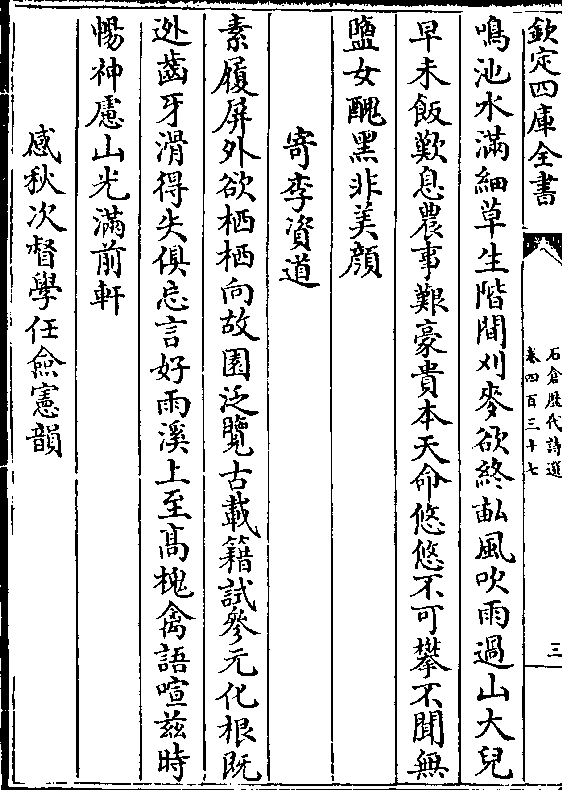 欽定四庫全書
石倉歷代詩選
卷四百三十七
三
鳴池水滿細草生階間刈麥欲終畝風吹雨過山大兒
早未飯歎息農事艱豪貴本天命悠悠不可攀不聞無
鹽女醜黑非美顔
寄李資道
素履屏外欲栖栖向故園泛覽古載籍試參元化根既
迯齒牙滑得失俱忘言好雨溪上至髙槐禽語喧兹時
暢神慮山光滿前軒
感秋次督學任僉憲韻